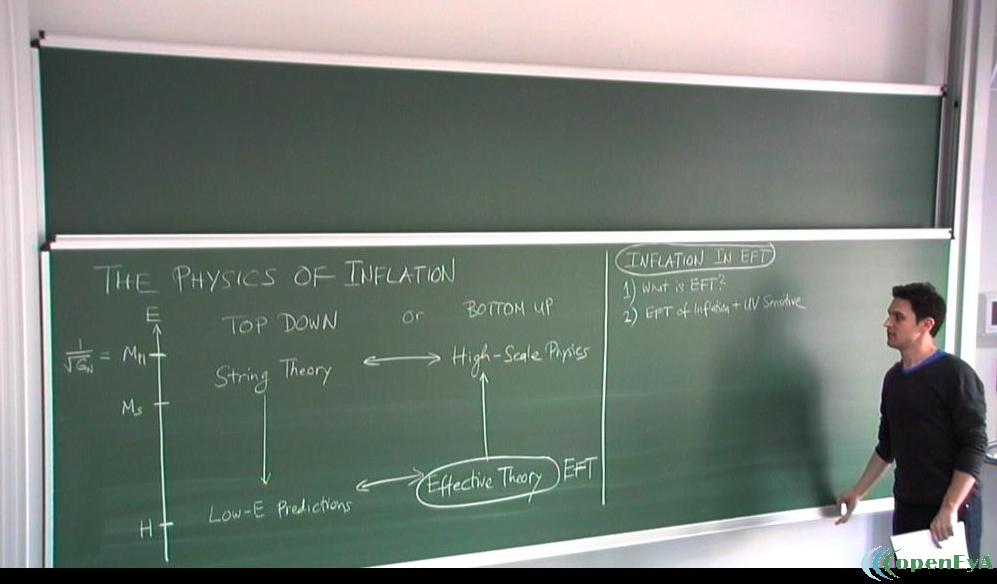 THE PHYSICS OF INFLATION
E
TOP DOWN or BOTTOM UP
1/√G_N = M_Pl
String Theory ⟷ High-Scale Physics
M_s
Effective Theory EFT
Low-E Predictions
H
INFLATION IN EFT
1) What is EFT?
2) EFT of Inflation + UV Sensitive
openEyA